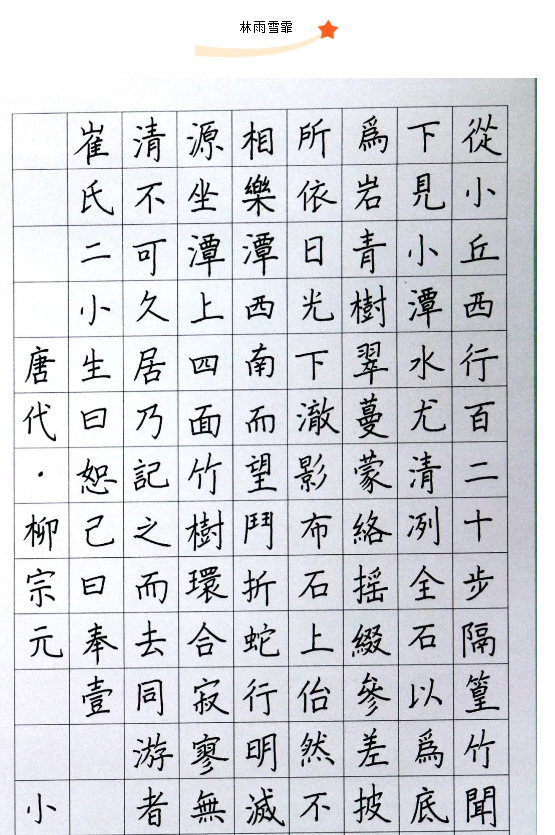 林雨雪霏
從小丘西行百二十步隔篁竹聞
下見小潭水尤清冽全石以爲底
爲岩青樹翠蔓蒙絡摇綴參差披
所依日光下澈影布石上佁然不
相樂潭西南而望鬥折蛇行明滅
源坐潭上四面竹樹環合寂寥無
清不可久居乃記之而去同游者
崔氏二小生曰恕己曰奉壹
唐代·柳宗元小